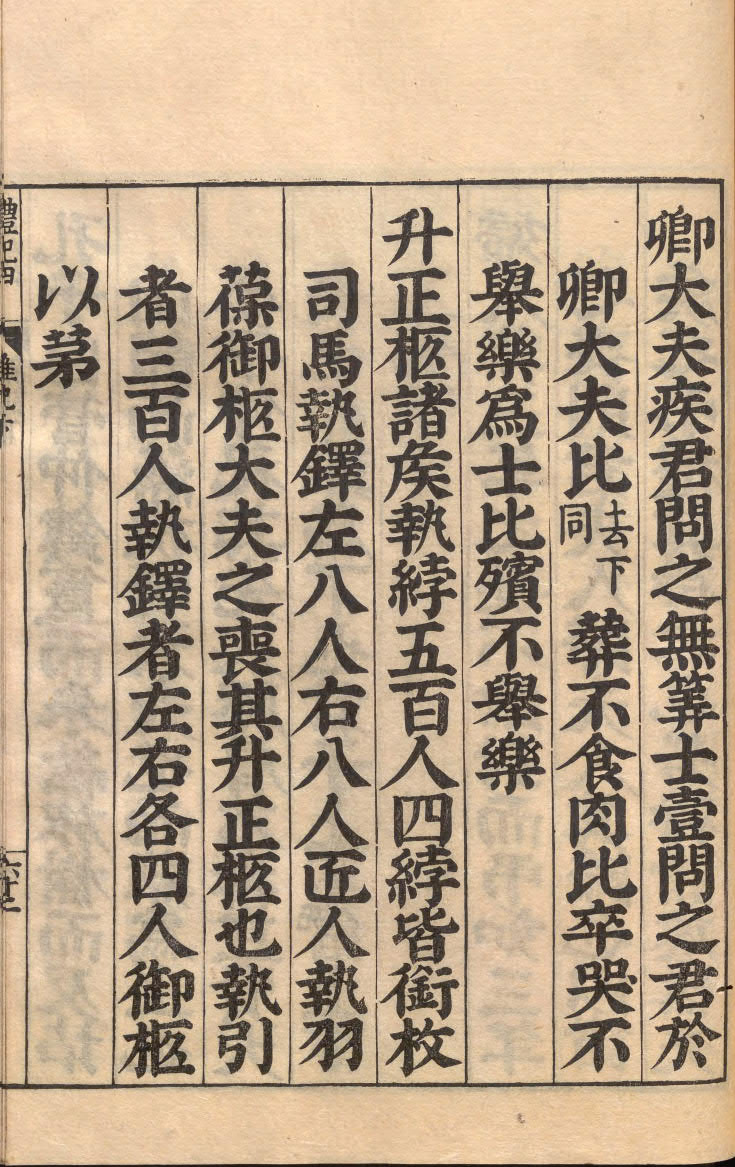 卿大夫疾君問之無筭士壹問之君於
卿大夫比去下同葬不食肉比卒哭不
舉樂爲士比殯不舉樂
升正柩諸矦執綍五百人四綍皆銜枚
司馬執鐸左八人右八人匠人執羽
葆御柩大夫之喪其升正柩也執引
者三百人執鐸者左右各四人御柩
以茅